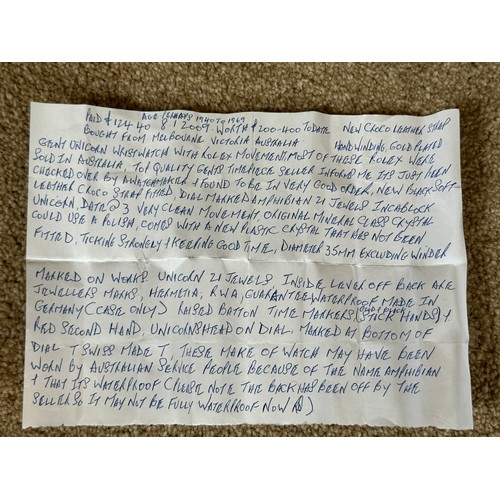 PAID $124.40 8/1/2009 WORTH $200-400 TO DATE NEW CROCO LEATHER STRAP
BOUGHT FROM MELBOURNE VICTORIA AUSTRALIA HAND WINDING, GOLD PLATED
GENT UNICORN WRISTWATCH WITH ROLEX MOVEMENT. MOST OF THESE ROLEX WERE
SOLD IN AUSTRALIA, TOP QUALITY GENTS TIMEPIECE SELLER INFORM ME ITS JUST BEEN
CHECKED OVER BY A WATCHMAKER & FOUND TO BE IN VERY GOOD ORDER, NEW BLACK SOFT
LEATHER CROCO STRAP FITTED, DIAL MARKED AMPHIBIAN 21 JEWELS INCABLOCK
UNICORN, DATE @ 3 VERY CLEAN MOVEMENT ORIGINAL MINERAL GLASS CRYSTAL
COULD USE A POLISH, COMES WITH A NEW PLASTIC CRYSTAL THAT HAS NOT BEEN
FITTED, TICKING STRONGLY & KEEPING GOOD TIME, DIAMETER 35MM EXCLUDING WINDER
MARKED ON WORKS. UNICORN 21 JEWELS INSIDE LEVER OFF BACK ARE
JEWELLERS MARKS, HERMETIA, RWA, GUARANTEE WATERPROOF MADE IN
GERMANY (CASE ONLY) RAISED BATTON TIME MARKERS, STICK HANDS) &
RED SECOND HAND, UNICORNS HEAD ON DIAL. MARKED AT BOTTOM OF
DIAL T SWISS MADE T, THESE MAKE OF WATCH MAY HAVE BEEN
WORN BY AUSTRALIAN SERVICE PEOPLE BECAUSE OF THE NAME AMPHIBIAN
& THAT ITS WATERPROOF (PLEASE NOTE THE BACK HAS BEEN OFF BY THE
SELLER SO IT MAY NOT BE FULLY WATERPROOF NOW)